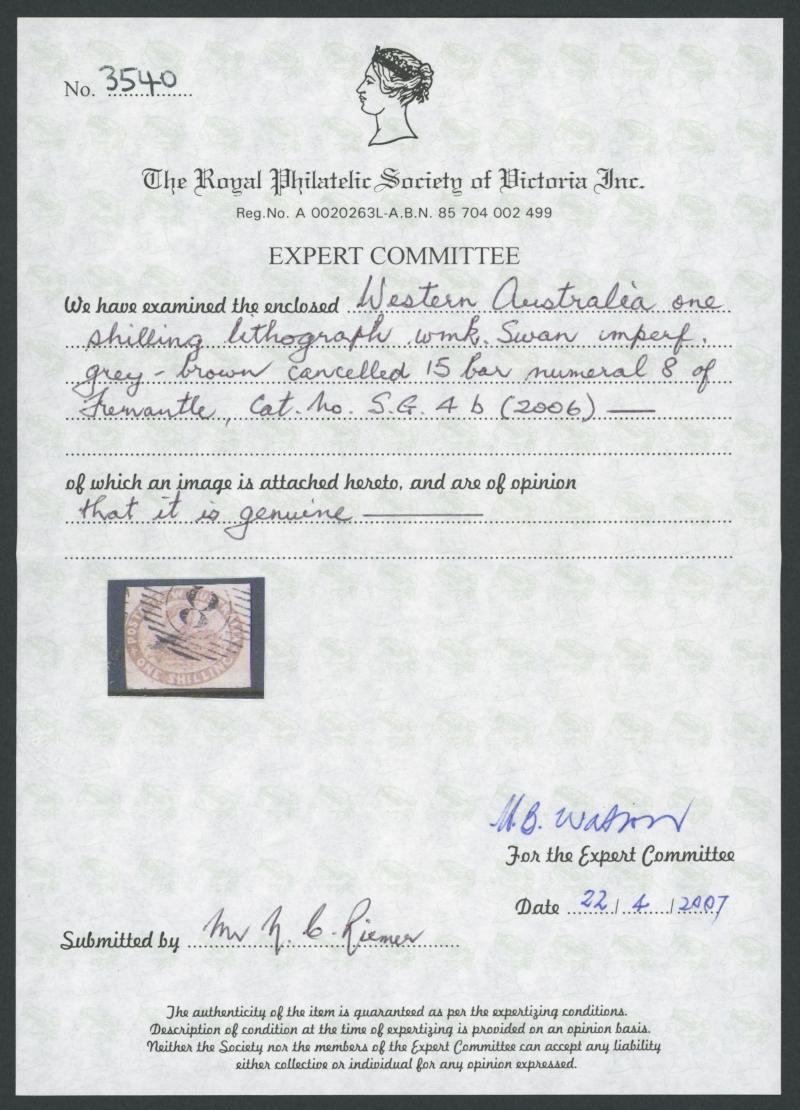 No. 3540
The Royal Philatelic Society of Victoria Inc.
Reg.No. A 0020263L-A.B.N. 85 704 002 499
EXPERT COMMITTEE
We have examined the enclosed Western Australia one
shilling lithograph, wmk. Swan imperf.
grey-brown cancelled 15 bar numeral 8 of
Fremantle, Cat. No. S.G. 4 b (2006) —
of which an image is attached hereto, and are of opinion
that it is genuine —
8
POSTAGE
ONE SHILLING
M.B. Watson
For the Expert Committee
Date 22/4/2007
Submitted by Mr N. C. Riemer
The authenticity of the item is guaranteed as per the expertizing conditions.
Description of condition at the time of expertizing is provided on an opinion basis.
Neither the Society nor the members of the Expert Committee can accept any liability
either collective or individual for any opinion expressed.